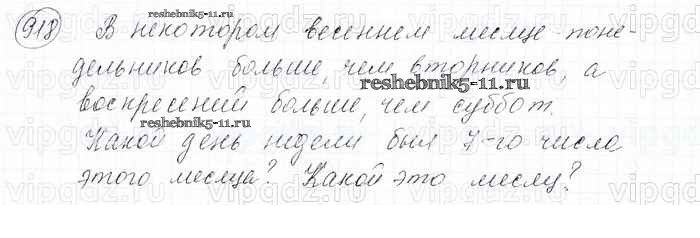 918 В некотором весеннем месяце поне-
дельников больше, чем вторников, а
воскресений больше, чем суббот.
Какой день недели был 7-го числа
этого месяца? Какой это месяц?
reshebnik5-11.ru
reshebnik5-11.ru
reshebnik5-11.ru
vipgdz.ru